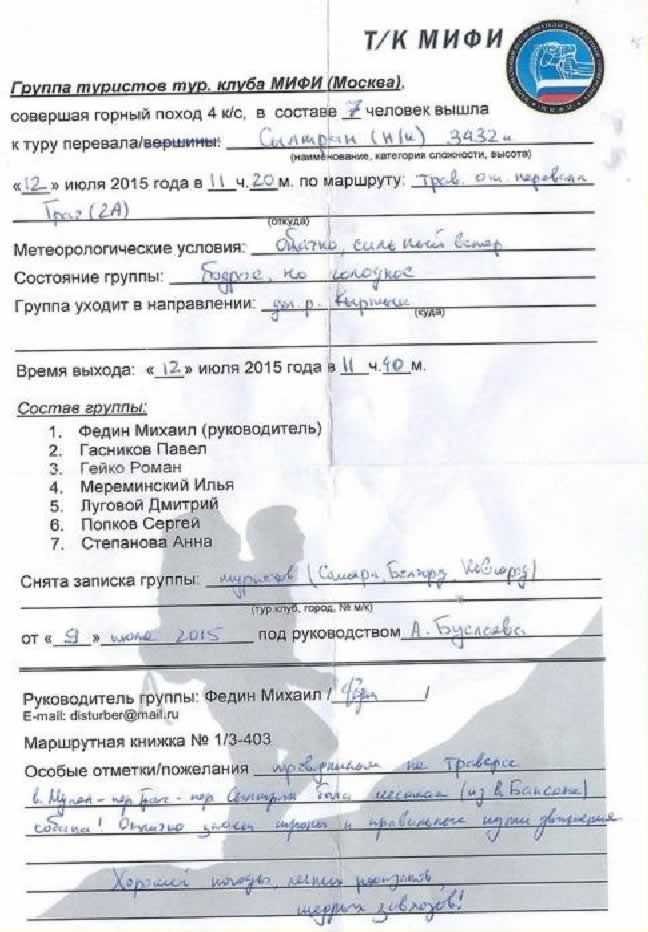 Т/К МИФИ
Группа туристов тур. клуба МИФИ (Москва),
совершая горный поход 4 к/с, в составе 7 человек вышла
к туру перевала/вершины: Сылтран (н/к) 3432 м
(наименование, категория сложности, высота)
«12» июля 2015 года в 11 ч. 20 м. по маршруту: трав. от перевала
(2А)
(откуда)
Метеорологические условия: Облачно, сильный ветер
Состояние группы: бодрое, но голодное
Группа уходит в направлении: дол. р. Кыртык
(куда)
Время выхода: «12» июля 2015 года в 11 ч. 40 м.
Состав группы:
1. Федин Михаил (руководитель)
2. Гасников Павел
3. Гейко Роман
4. Мереминский Илья
5. Луговой Дмитрий
6. Попков Сергей
7. Степанова Анна
Снята записка группы: туристов (Самара,
(тур.клуб, город, № м/к)
от «9» июля 2015 под руководством А. Буслаева
Руководитель группы: Федин Михаил / /
E-mail: disturber@mail.ru
Маршрутная книжка № 1/3-403
Особые отметки/пожелания на траверсе
в. - пер. - пер. Сылтран была местная (из В. Баксана)
собака! Отлично знает тропы и правильные пути движения
Хорошей погоды, легких рюкзаков,
щедрых завхозов!